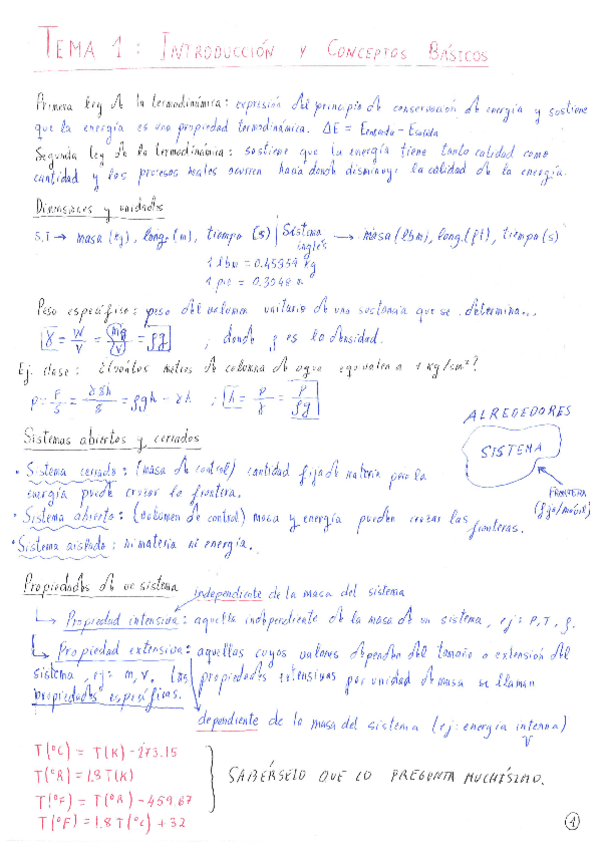 TEMA 1: INTRODUCCIÓN Y CONCEPTOS BÁSICOS
Primera ley de la termodinámica: expresión del principio de conservación de energía y sostiene
que la energía es una propiedad termodinámica. ΔE = Eentrada - Esalida
Segunda ley de la termodinámica: sostiene que la energía tiene tanto calidad como
cantidad y los procesos reales ocurren hacia donde disminuye la calidad de la energía.
Dimensiones y unidades
S.I → masa (kg), long. (m), tiempo (s) | Sistema inglés → masa (lbm), long. (ft), tiempo (s)
1 lbm = 0.45359 kg
1 pie = 0.3048 m
Peso específico: peso del volumen unitario de una sustancia que se determina...
γ = W/V = mg/V = ρg ; donde ρ es la densidad.
Ej. clase: ¿Cuántos metros de columna de agua equivalen a 1 kg/cm²?
p = F/S = γSh/S = ρgh = γh ; h = P/γ = P/ρg
ALREDEDORES
SISTEMA
FRONTERA
(fija/móvil)
Sistemas abiertos y cerrados
• Sistema cerrado: (masa de control) cantidad fija de materia pero la
energía puede cruzar la frontera.
• Sistema abierto: (volumen de control) masa y energía pueden cruzar las fronteras.
• Sistema aislado: ni materia ni energía.
Propiedades de un sistema
independiente de la masa del sistema
↳ Propiedad intensiva: aquella independiente de la masa de un sistema, ej: P, T, ρ.
↳ Propiedad extensiva: aquellas cuyos valores dependen del tamaño o extensión del
sistema, ej: m, V. Las propiedades extensivas por unidad de masa se llaman
propiedades específicas.
dependiente de la masa del sistema (ej: energía interna)
T(ºC) = T(K) - 273.15
T(ºR) = 1.8 T(K)
T(ºF) = T(ºR) - 459.67
T(ºF) = 1.8 T(ºC) + 32
SABÉRSELO QUE LO PREGUNTA MUCHÍSIMO.
1